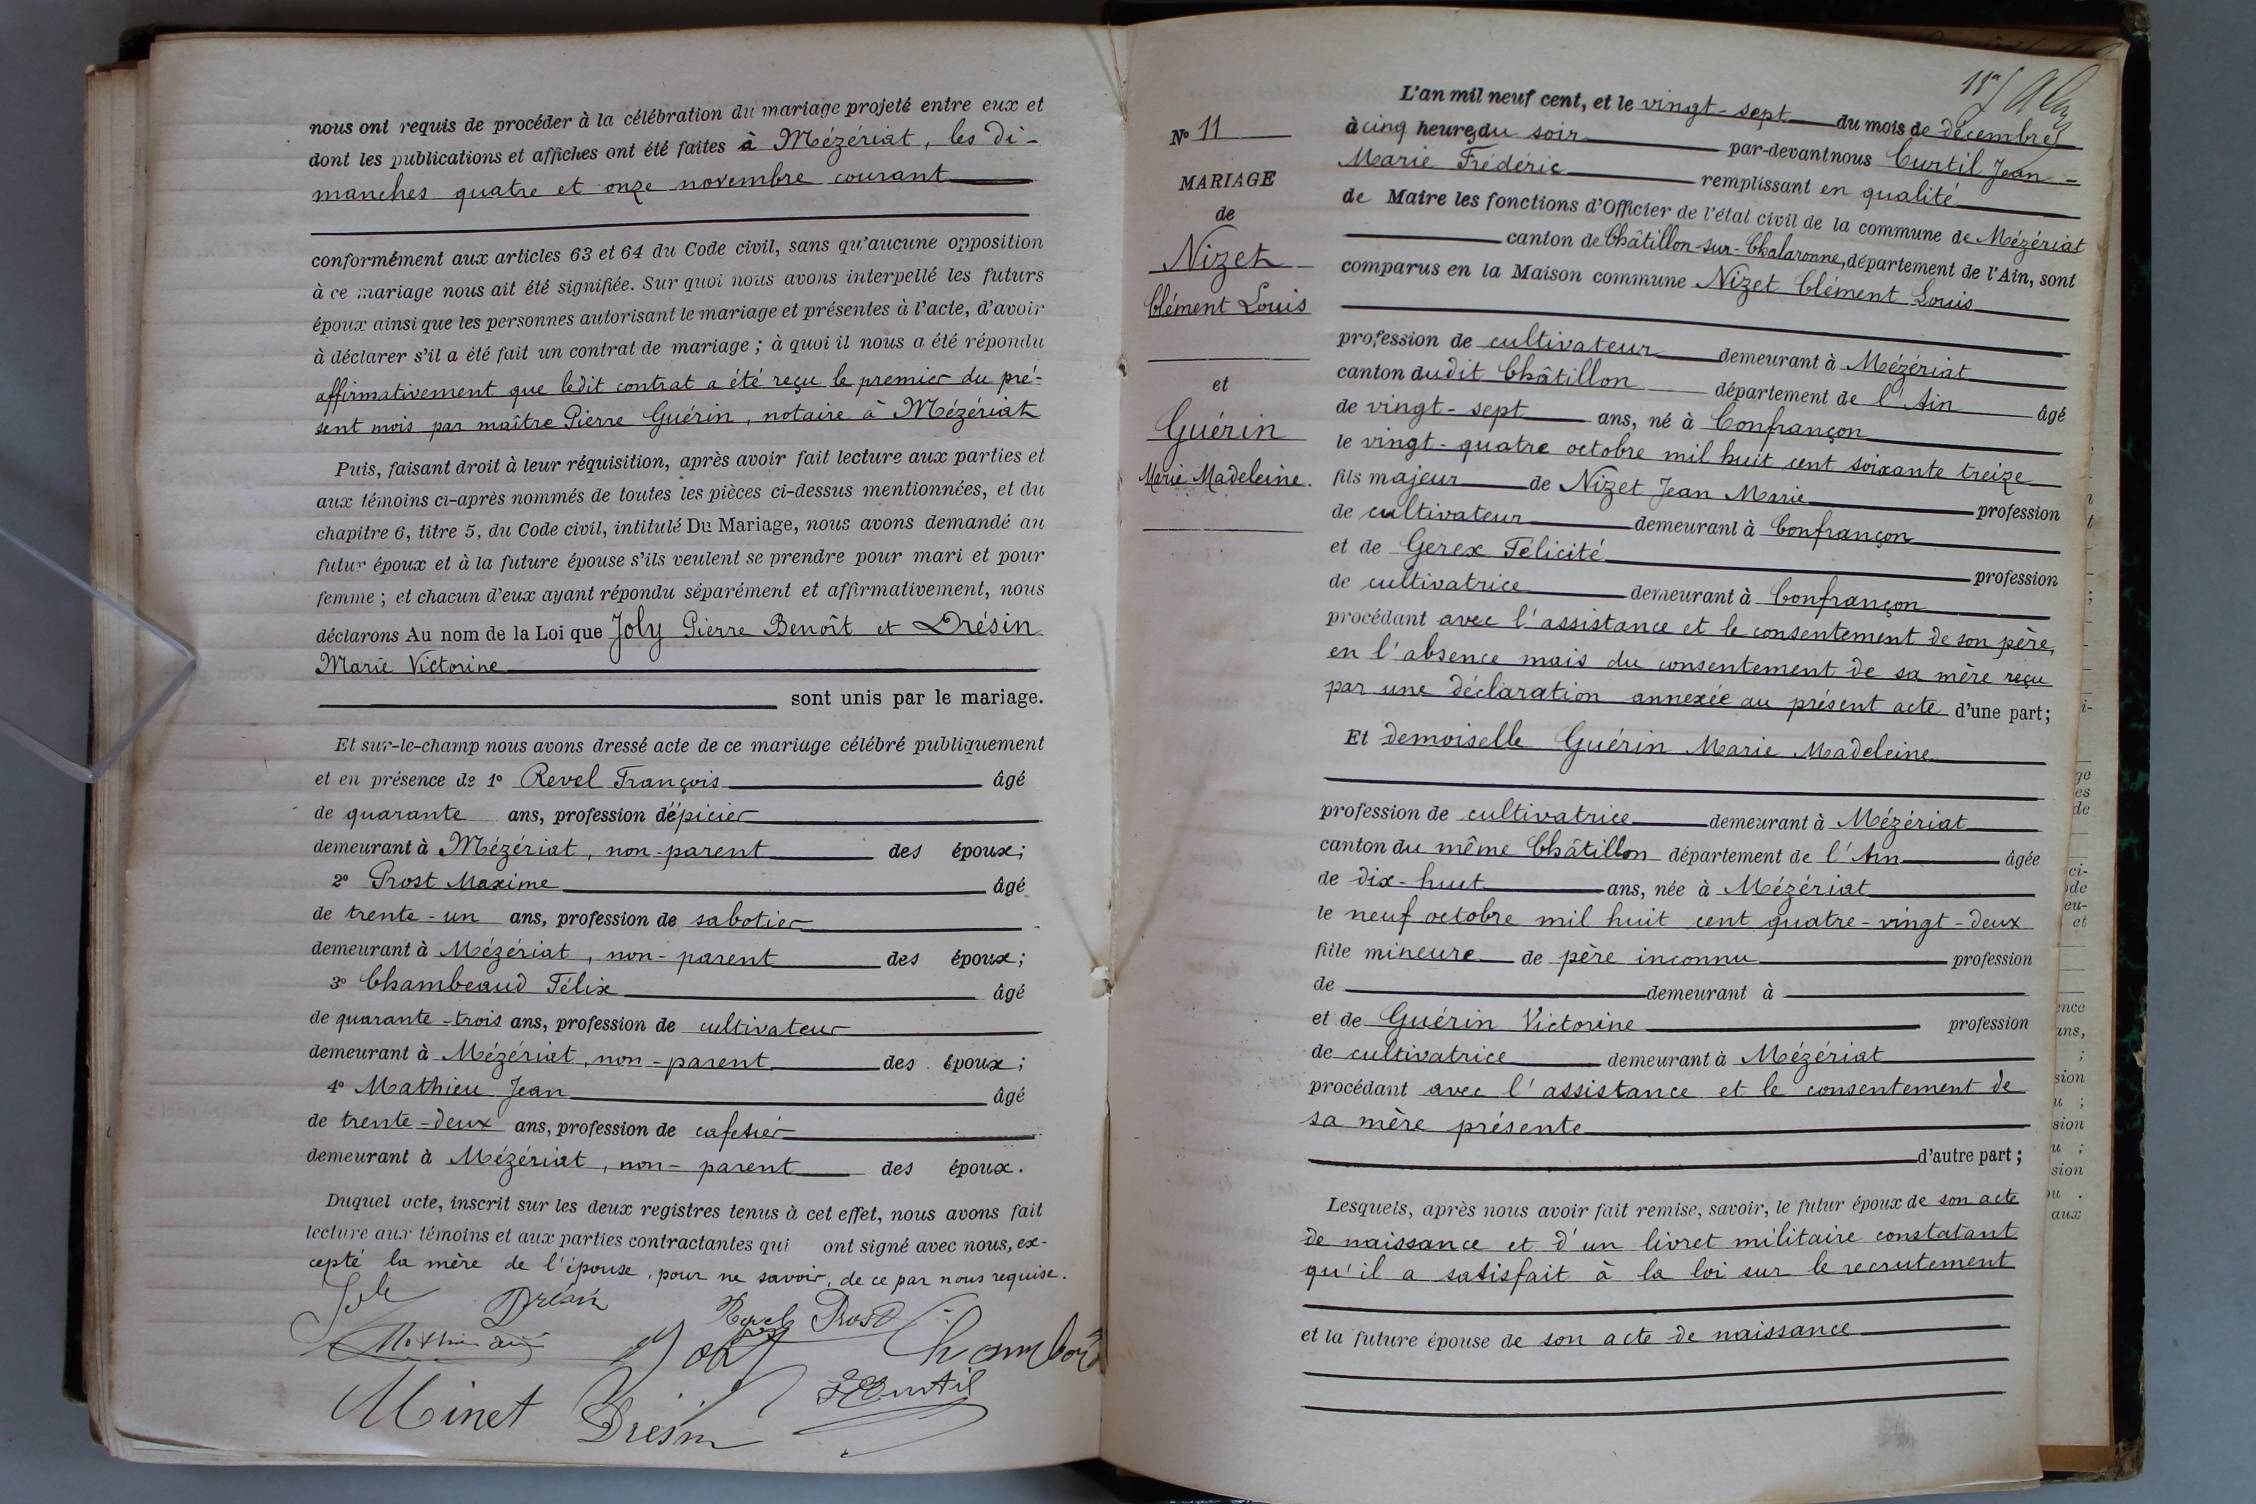 nous ont requis de procéder à la célébration du mariage projeté entre eux et
dont les publications et affiches ont été faites à Mézériat, les di-
manches quatre et onze novembre courant
conformément aux articles 63 et 64 du Code civil, sans qu'aucune opposition
à ce mariage nous ait été signifiée. Sur quoi nous avons interpellé les futurs
époux ainsi que les personnes autorisant le mariage et présentes à l'acte, d'avoir
à déclarer s'il a été fait un contrat de mariage ; à quoi il nous a été répondu
affirmativement que ledit contrat a été reçu le premier du pré-
sent mois par maître Pierre Guérin, notaire à Mézériat
Puis, faisant droit à leur réquisition, après avoir fait lecture aux parties et
aux témoins ci-après nommés de toutes les pièces ci-dessus mentionnées, et du
chapitre 6, titre 5, du Code civil, intitulé Du Mariage, nous avons demandé au
futur époux et à la future épouse s'ils veulent se prendre pour mari et pour
femme ; et chacun d'eux ayant répondu séparément et affirmativement, nous
déclarons Au nom de la Loi que Joly Pierre Benoît et Drésin
Marie Victorine
sont unis par le mariage.
Et sur-le-champ nous avons dressé acte de ce mariage célébré publiquement
et en présence de 1º Revel François âgé
de quarante ans, profession d'épicier
demeurant à Mézériat, non-parent des époux ;
2º Prost Maxime âgé
de trente-un ans, profession de sabotier
demeurant à Mézériat, non-parent des époux ;
3º Chambeaud Félix âgé
de quarante-trois ans, profession de cultivateur
demeurant à Mézériat, non-parent des époux ;
4º Mathieu Jean âgé
de trente-deux ans, profession de cafetier
demeurant à Mézériat, non-parent des époux.
Duquel acte, inscrit sur les deux registres tenus à cet effet, nous avons fait
lecture aux témoins et aux parties contractantes qui ont signé avec nous, ex-
cepté la mère de l'épouse, pour ne savoir, de ce par nous requise.
Drésin Revel Prost
Joly
Minet Drésin Curtil
Nº 11
MARIAGE
de
Nizet
Clément Louis
et
Guérin
Marie Madeleine.
L'an mil neuf cent, et le vingt-sept du mois de décembre
à cinq heures du soir par-devant nous Curtil Jean-
Marie Frédéric remplissant en qualité
de Maire les fonctions d'Officier de l'état civil de la commune de Mézériat
canton de Châtillon-sur-Chalaronne, département de l'Ain, sont
comparus en la Maison commune Nizet Clément Louis
profession de cultivateur demeurant à Mézériat
canton dudit Châtillon département de l'Ain âgé
de vingt-sept ans, né à Confrançon
le vingt-quatre octobre mil huit cent soixante treize
fils majeur de Nizet Jean Marie profession
de cultivateur demeurant à Confrançon
et de Gerex Félicité profession
de cultivatrice demeurant à Confrançon
procédant avec l'assistance et le consentement de son père,
en l'absence mais du consentement de sa mère reçu
par une déclaration annexée au présent acte d'une part ;
Et demoiselle Guérin Marie Madeleine
profession de cultivatrice demeurant à Mézériat
canton du même Châtillon département de l'Ain âgée
de dix-huit ans, née à Mézériat
le neuf octobre mil huit cent quatre-vingt-deux
fille mineure de père inconnu profession
de demeurant à
et de Guérin Victorine profession
de cultivatrice demeurant à Mézériat
procédant avec l'assistance et le consentement de
sa mère présente
d'autre part ;
Lesquels, après nous avoir fait remise, savoir, le futur époux de son acte
de naissance et d'un livret militaire constatant
qu'il a satisfait à la loi sur le recrutement
et la future épouse de son acte de naissance